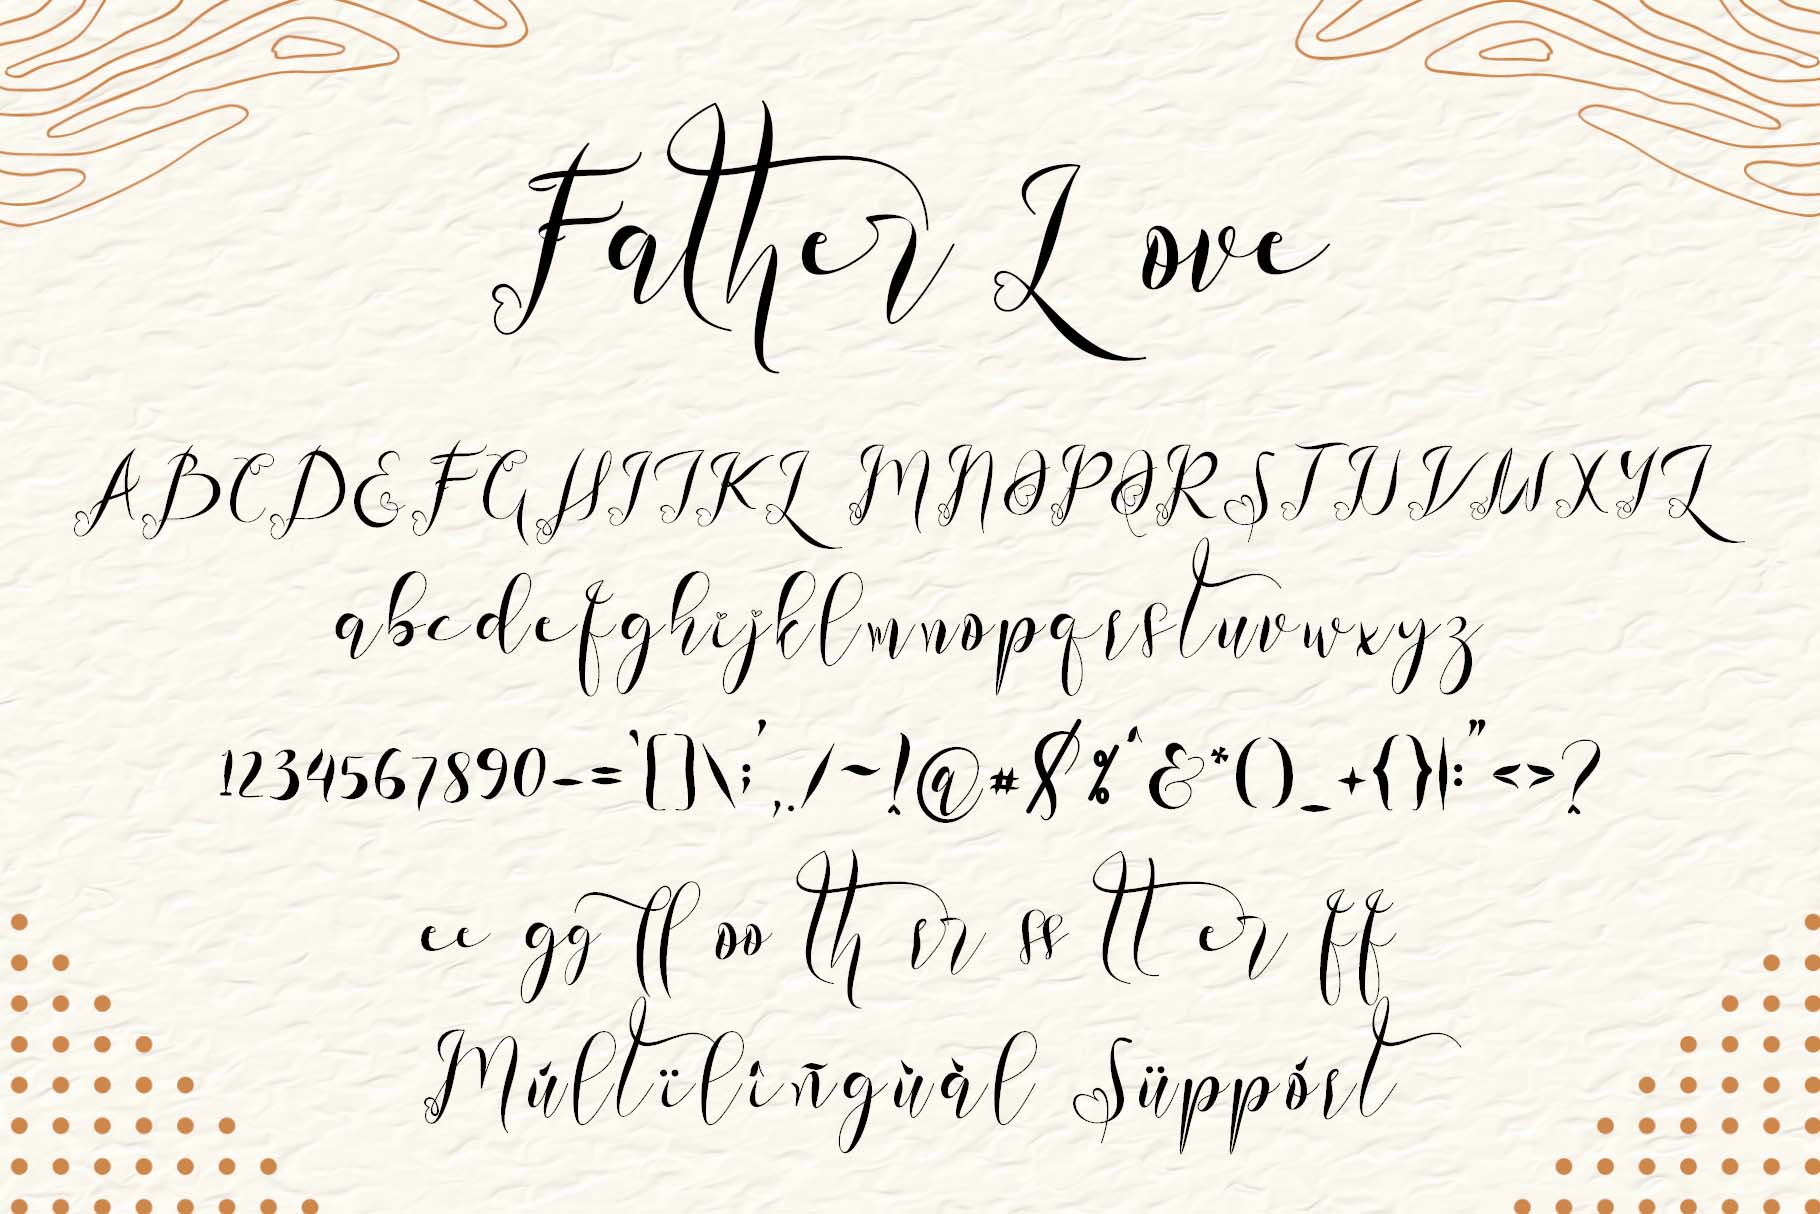 Father Love
ABCDEFGHIJKLMNOPQRSTUVWXYZ
abcdefghijklmnopqrstuvwxyz
1234567890-=`[]\;',./~!@#$%^&*()_+{}|:"<>?
ee gg ll oo th sr ss tt er ff
Múltïlîñgùàl Süppórt